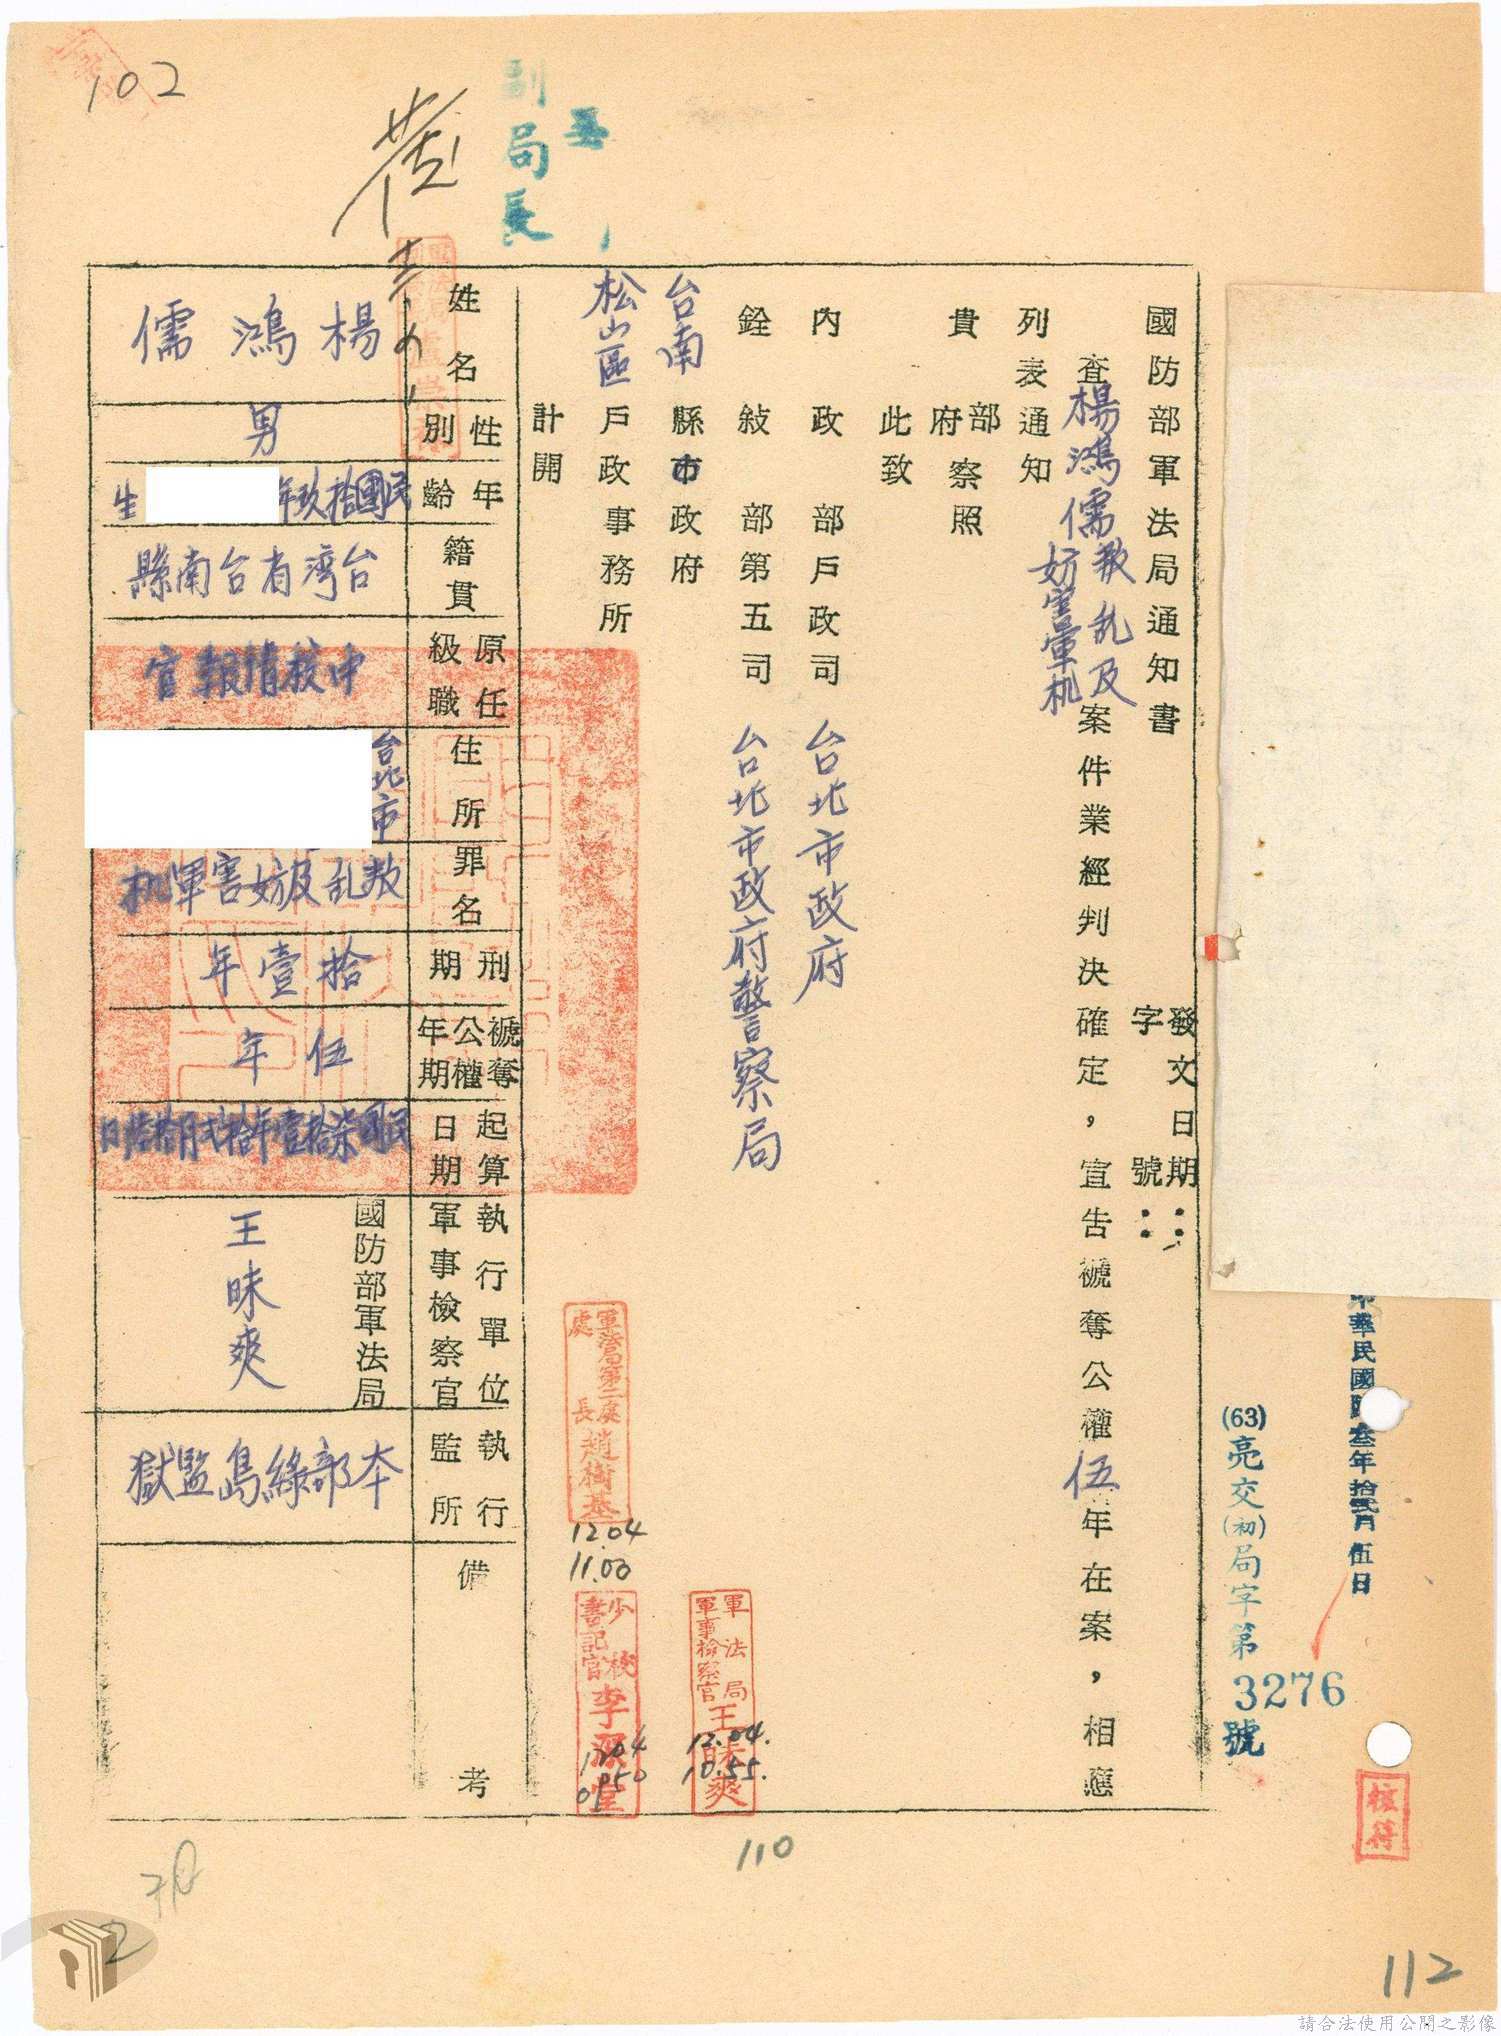 102
副局長
國防部軍法局通知書
發文日期：
字號：
中華民國陸叁年拾貳月伍日
(63)亮交(初)局字第3276號
核符
查楊鴻儒叛乱及妨害軍机案件業經判決確定，宣告褫奪公權伍年在案，相應
列表通知
貴部府察照
此致
內政部戶政司 台北市政府
銓敍部第五司 台北市政府警察局
台南縣市政府
松山區戶政事務所
計開
姓名 楊鴻儒
性別 男
年齡 民國拾玖年 生
籍貫 台湾省台南縣
原任級職 中校情報官
住所 台北市
罪名 叛乱及妨害軍机
刑期 拾壹年
褫奪公權年期 伍年
起算日期
執行單位軍事檢察官 國防部軍法局 王昧爽
執行監所 本部綠島監獄
備考
軍法局第二處處長趙樹基
12.04
11.00
少校書記官李源堂
1204
0950
軍法局軍事檢察官王昧爽
12.04.
10.55.
110
112
請合法使用公開之影像